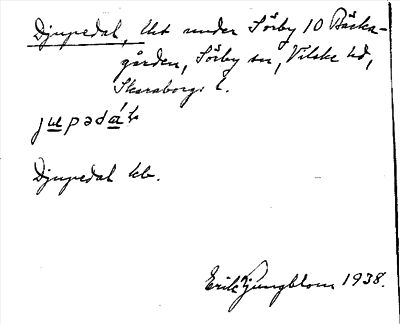 Djupedal, Ust under Sörby 10 Bäcka-
gården, Sörby sn, Vilske hd,
Skaraborgs l.
jupədál
Djupedal kb.
Erik Ljungblom 1938.